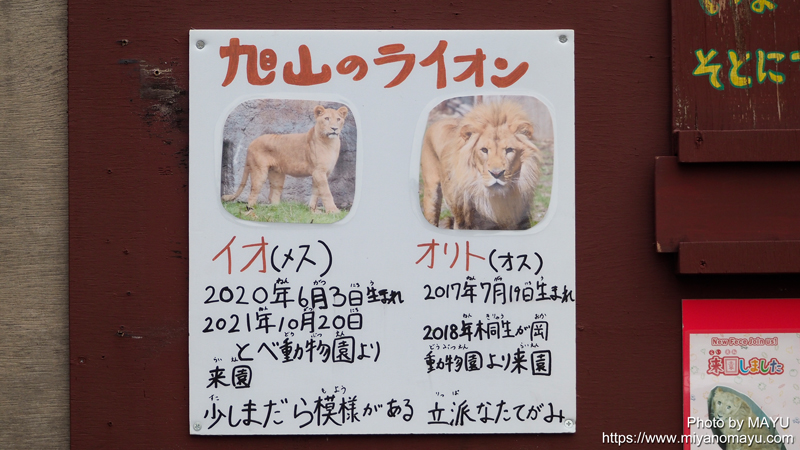 旭山のライオン
イオ(メス)
2020年6月3日生まれ
2021年10月20日
とべ動物園より
来園
少しまだら模様がある
オリト(オス)
2017年7月19日生まれ
2018年桐生が岡
動物園より来園
立派なたてがみ
そとに
New Face Join us!
来園しました
Photo by MAYU
https://www.miyanomayu.com